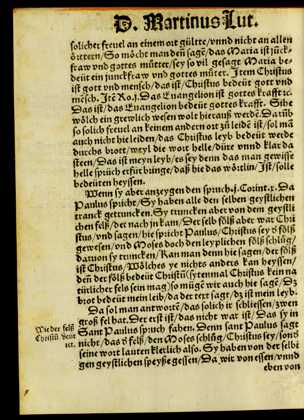 D. Martinus Lut.
solicher frevel an einem ort gültte/vnnd nicht an allen
örttern/So möcht man den͂ sagē/das Maria ist jūck-
fraw vnd gottes mütter/sey so vil gesagt Maria be-
deüt ein junckfraw vnd gottes müter. Item Christus
ist gott vnd mensch/das ist/Christus bedeüt gott vnd
mēsch. Jtē Ro.j. Das Euangelion ist gottes krafft ꝛc.
Das ist/das Euangelion bedeüt gottes krafft. Sihe
wölch ein grewlich wesen wolt hierauß werdē. Darūb
so solich freuel an keinem andern ort zů leidē ist/sol mā
auch nicht hie leiden/das Christus leyb bedeüt werde
durchs brott/weyl die wort helle/dürr vnnd klar da
steen/Das ist meyn leyb/es sey denn das man gewisse
helle sprüch erfürbringe/daß hie das wörtlin/Jst/solle
bedeüten heyssen.
Wenn sy aber anzeygen den spruch.j.Corint.x. Da
Paulus spricht/Sy haben alle den selben geystlichen
tranck getruncken. Sy truncken aber von dem geystli-
chen felß/der nach jn kam/Der selb fölß aber war Chri
stus/vnd sagen/hie spricht Paulus/Christus sey ď fölß
gewesen/vnd Moses doch den leyplichen fölß schlůg/
daruon sy truncken/Kan man denn hie sagen/der fölß
ist Christus/Wölches ye nichts anders kan heyssen/
den͂ der fölß bedeüt Christū (seytenmal Christus kein na
türlicher fels sein mag) so mügē wir auch hie sagē/Dz
brot bedeüt mein leib/da der text sagt/dz ist mein leyb.
Da sol man antwortē/das solich ir schliessen/zwen
groß fel hat. Der erst ist/das nicht war ist/Das sy in
Sant Paulus spruch haben. Denn sant Paulus sagt
nicht/das ď felß/den Moses schlůg/Christus sey/sond̄
seine wort lauten klerlich also. Sy haben von der selbi
gen geystlichen speyße gessen/Da wir von essen/vnnd
eben von
Wie der felß
Christū beut
tet.